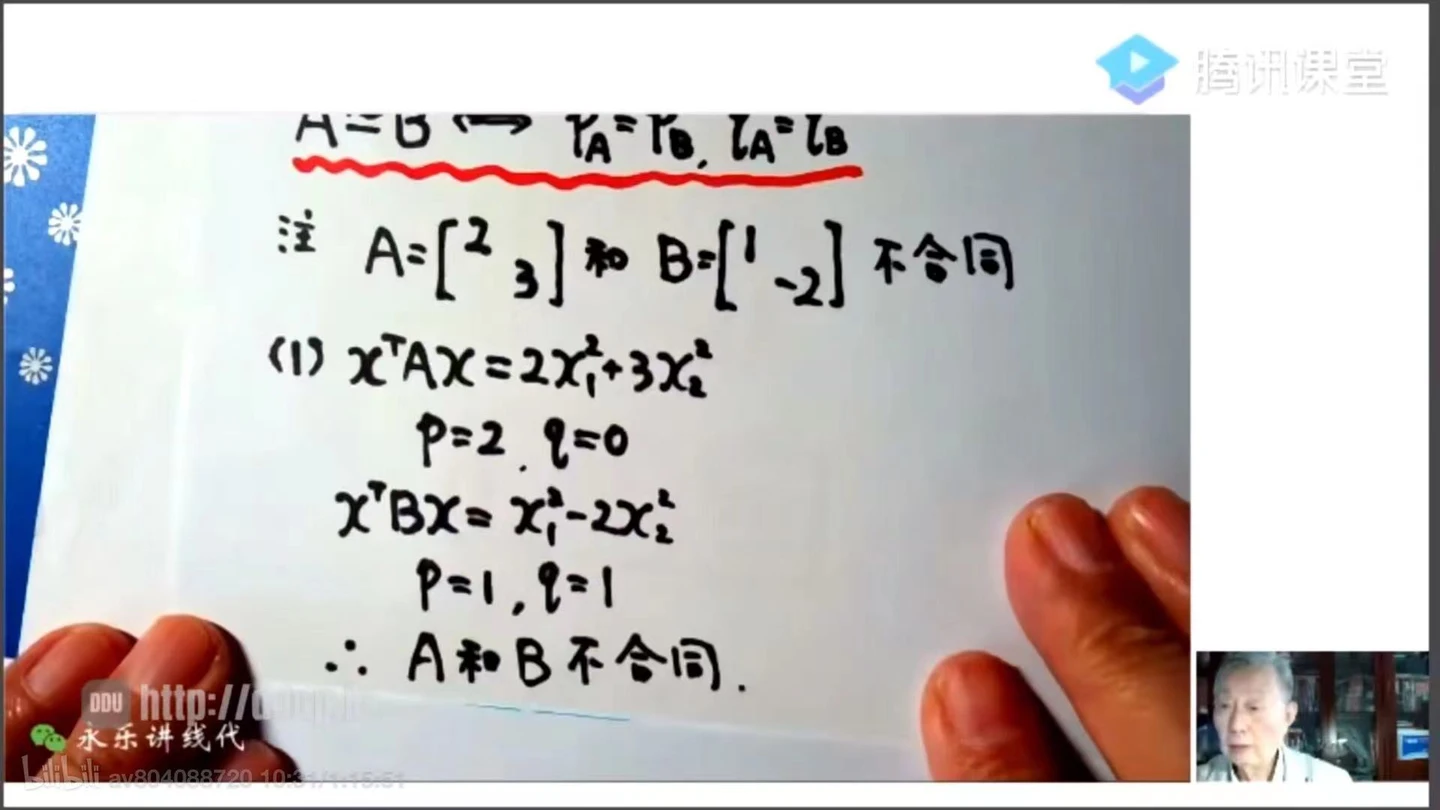 腾讯课堂
A≃B ⟺ p_A=p_B, q_A=q_B
注 A=[2 3] 和 B=[1 -2] 不合同
(1) xᵀAx=2x₁²+3x₂²
p=2, q=0
xᵀBx=x₁²-2x₂²
p=1, q=1
∴ A和B不合同.
DDU http://
永乐讲线代
bilibili av804088720 10:31/1:15:51